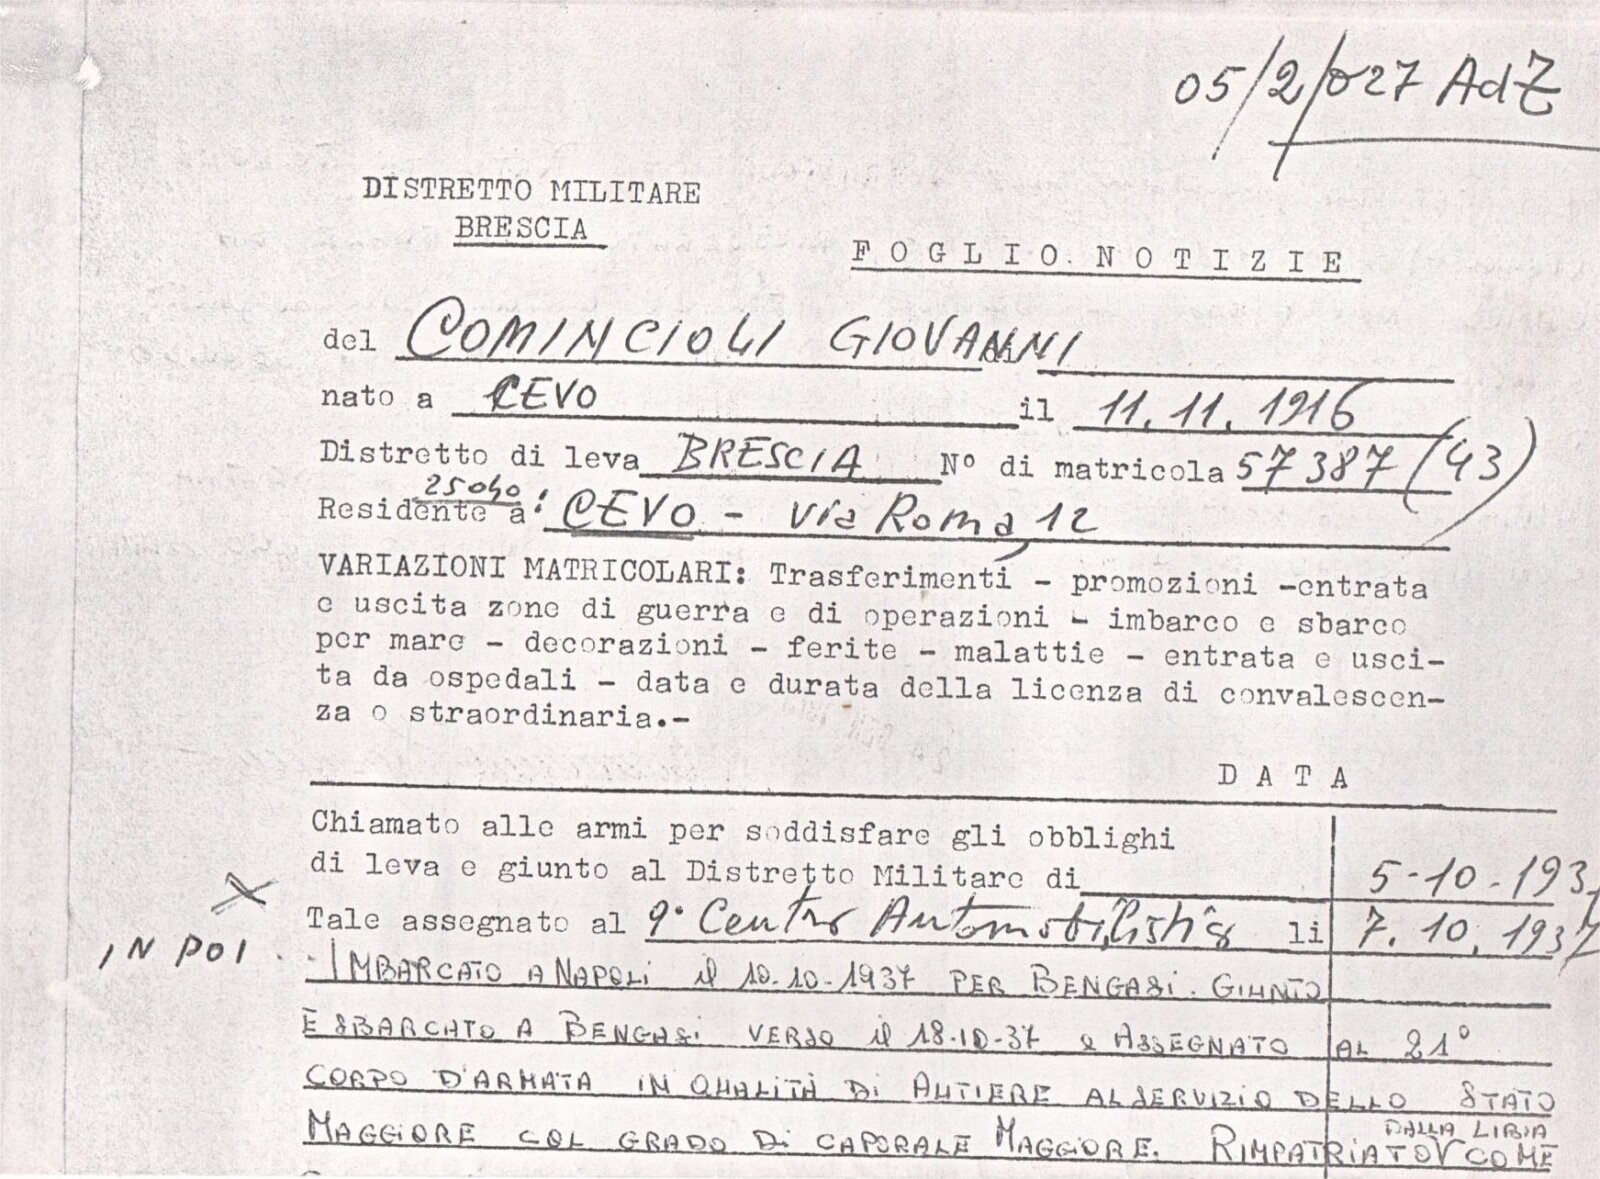 05/2/027 AdZ
DISTRETTO MILITARE
BRESCIA
FOGLIO NOTIZIE
del COMINCIOLI GIOVANNI di
nato a CEVO il 11.11.1916
Distretto di leva BRESCIA N° di matricola 57387 (43)
25040
Residente a: CEVO - via Roma, 12
VARIAZIONI MATRICOLARI: Trasferimenti - promozioni -entrata
e uscita zone di guerra e di operazioni - imbarco e sbarco
per mare - decorazioni - ferite - malattie - entrata e usci-
ta da ospedali - data e durata della licenza di convalescen-
za o straordinaria.-
DATA
Chiamato alle armi per soddisfare gli obblighi
di leva e giunto al Distretto Militare di 5-10-193
Tale assegnato al 9° Centro Automobilistico li 7.10.1937
IN POI IMBARCATO A NAPOLI il 10.10.1937 PER BENGASI. GIUNTO
E SBARCATO A BENGASI VERSO il 18-10-37 e ASSEGNATO AL 21°
CORPO D'ARMATA IN QUALITÀ DI AUTIERE AL SERVIZIO DELLO STATO
DALLA LIBIA
MAGGIORE COL GRADO DI CAPORALE MAGGIORE. RIMPATRIATO V COME